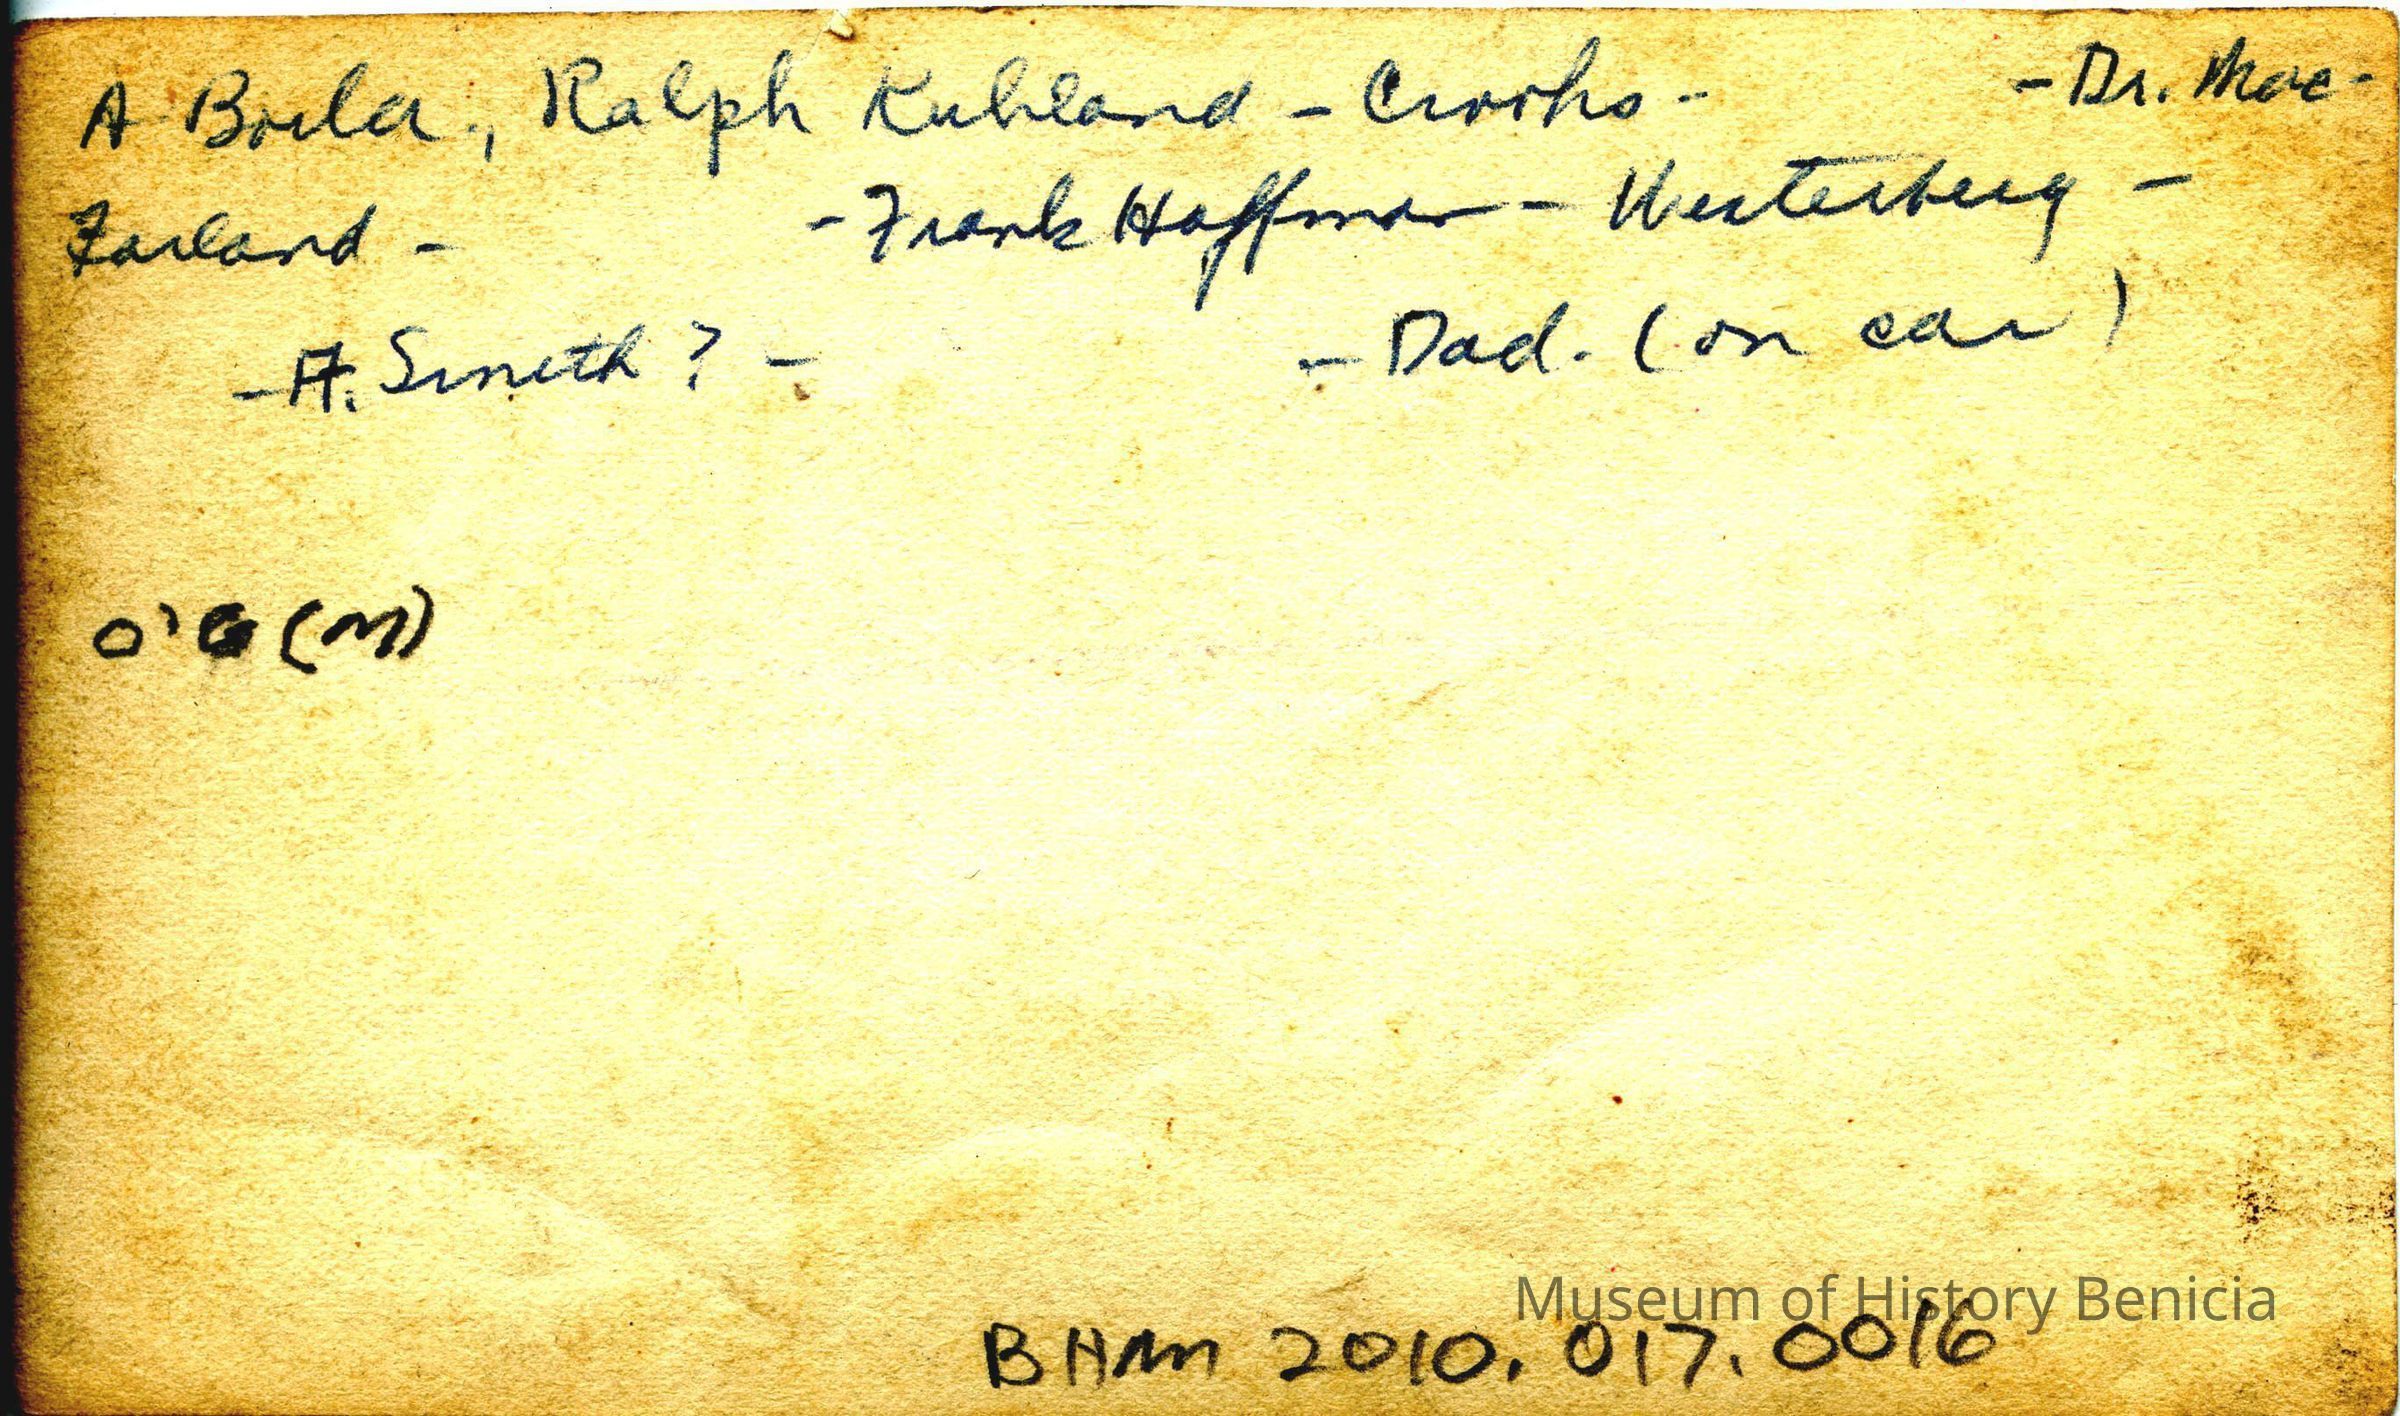 A Boila., Ralph Kuhland - Crooks - - Dr. Mac-
Farland - - Frank Hoffman - Westerberg -
- A. Smith ? - - Dad. (on car)
O'G (M)
Museum of History Benicia
BHM 2010.017.0016